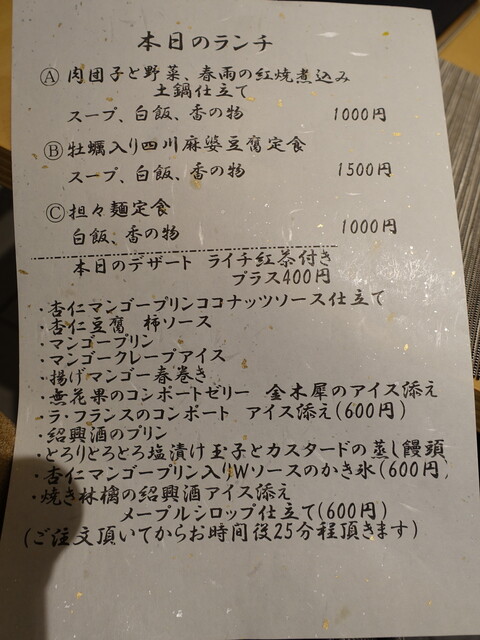 本日のランチ
Ⓐ 肉団子と野菜、春雨の紅焼煮込み
土鍋仕立て
スープ、白飯、香の物 1000円
Ⓑ 牡蠣入り四川麻婆豆腐定食
スープ、白飯、香の物 1500円
Ⓒ 担々麺定食
白飯、香の物 1000円
本日のデザート ライチ紅茶付き
プラス400円
・杏仁マンゴープリンココナッツソース仕立て
・杏仁豆腐 柿ソース
・マンゴープリン
・マンゴークレープアイス
・揚げマンゴー春巻き
・無花果のコンポートゼリー 金木犀のアイス添え
・ラ・フランスのコンポート アイス添え(600円)
・紹興酒のプリン
・とろりとろとろ塩漬け玉子とカスタードの蒸し饅頭
・杏仁マンゴープリン入りWソースのかき氷(600円)
・焼き林檎の紹興酒アイス添え
メープルシロップ仕立て(600円)
(ご注文頂いてからお時間後25分程頂きます)